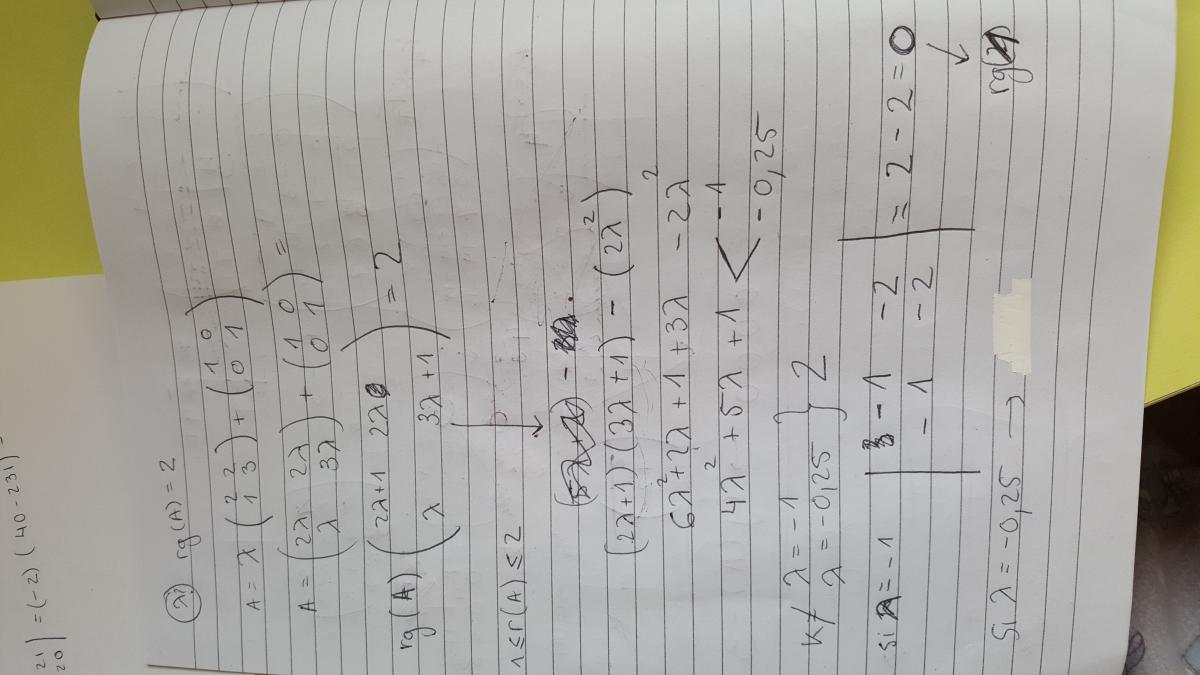 21 | = (-2) (40-231) =
20 |
λ? rg(A) = 2
A = λ (2 2) + (1 0)
(1 3) (0 1)
A = (2λ 2λ) + (1 0) =
(λ 3λ) (0 1)
rg(A) (2λ+1 2λ) = 2
(λ 3λ+1)
1 ≤ r(A) ≤ 2
(2λ+1)·(3λ+1) - (2λ²)
6λ²+2λ+1+3λ -2λ²
4λ²+5λ+1 < -1
-0,25
λ = -1
λ = -0,25 } 2
si = -1 | -1 -2 | = 2 - 2 = 0
| -1 -2 |
↓
rg(
Si λ = -0,25 →